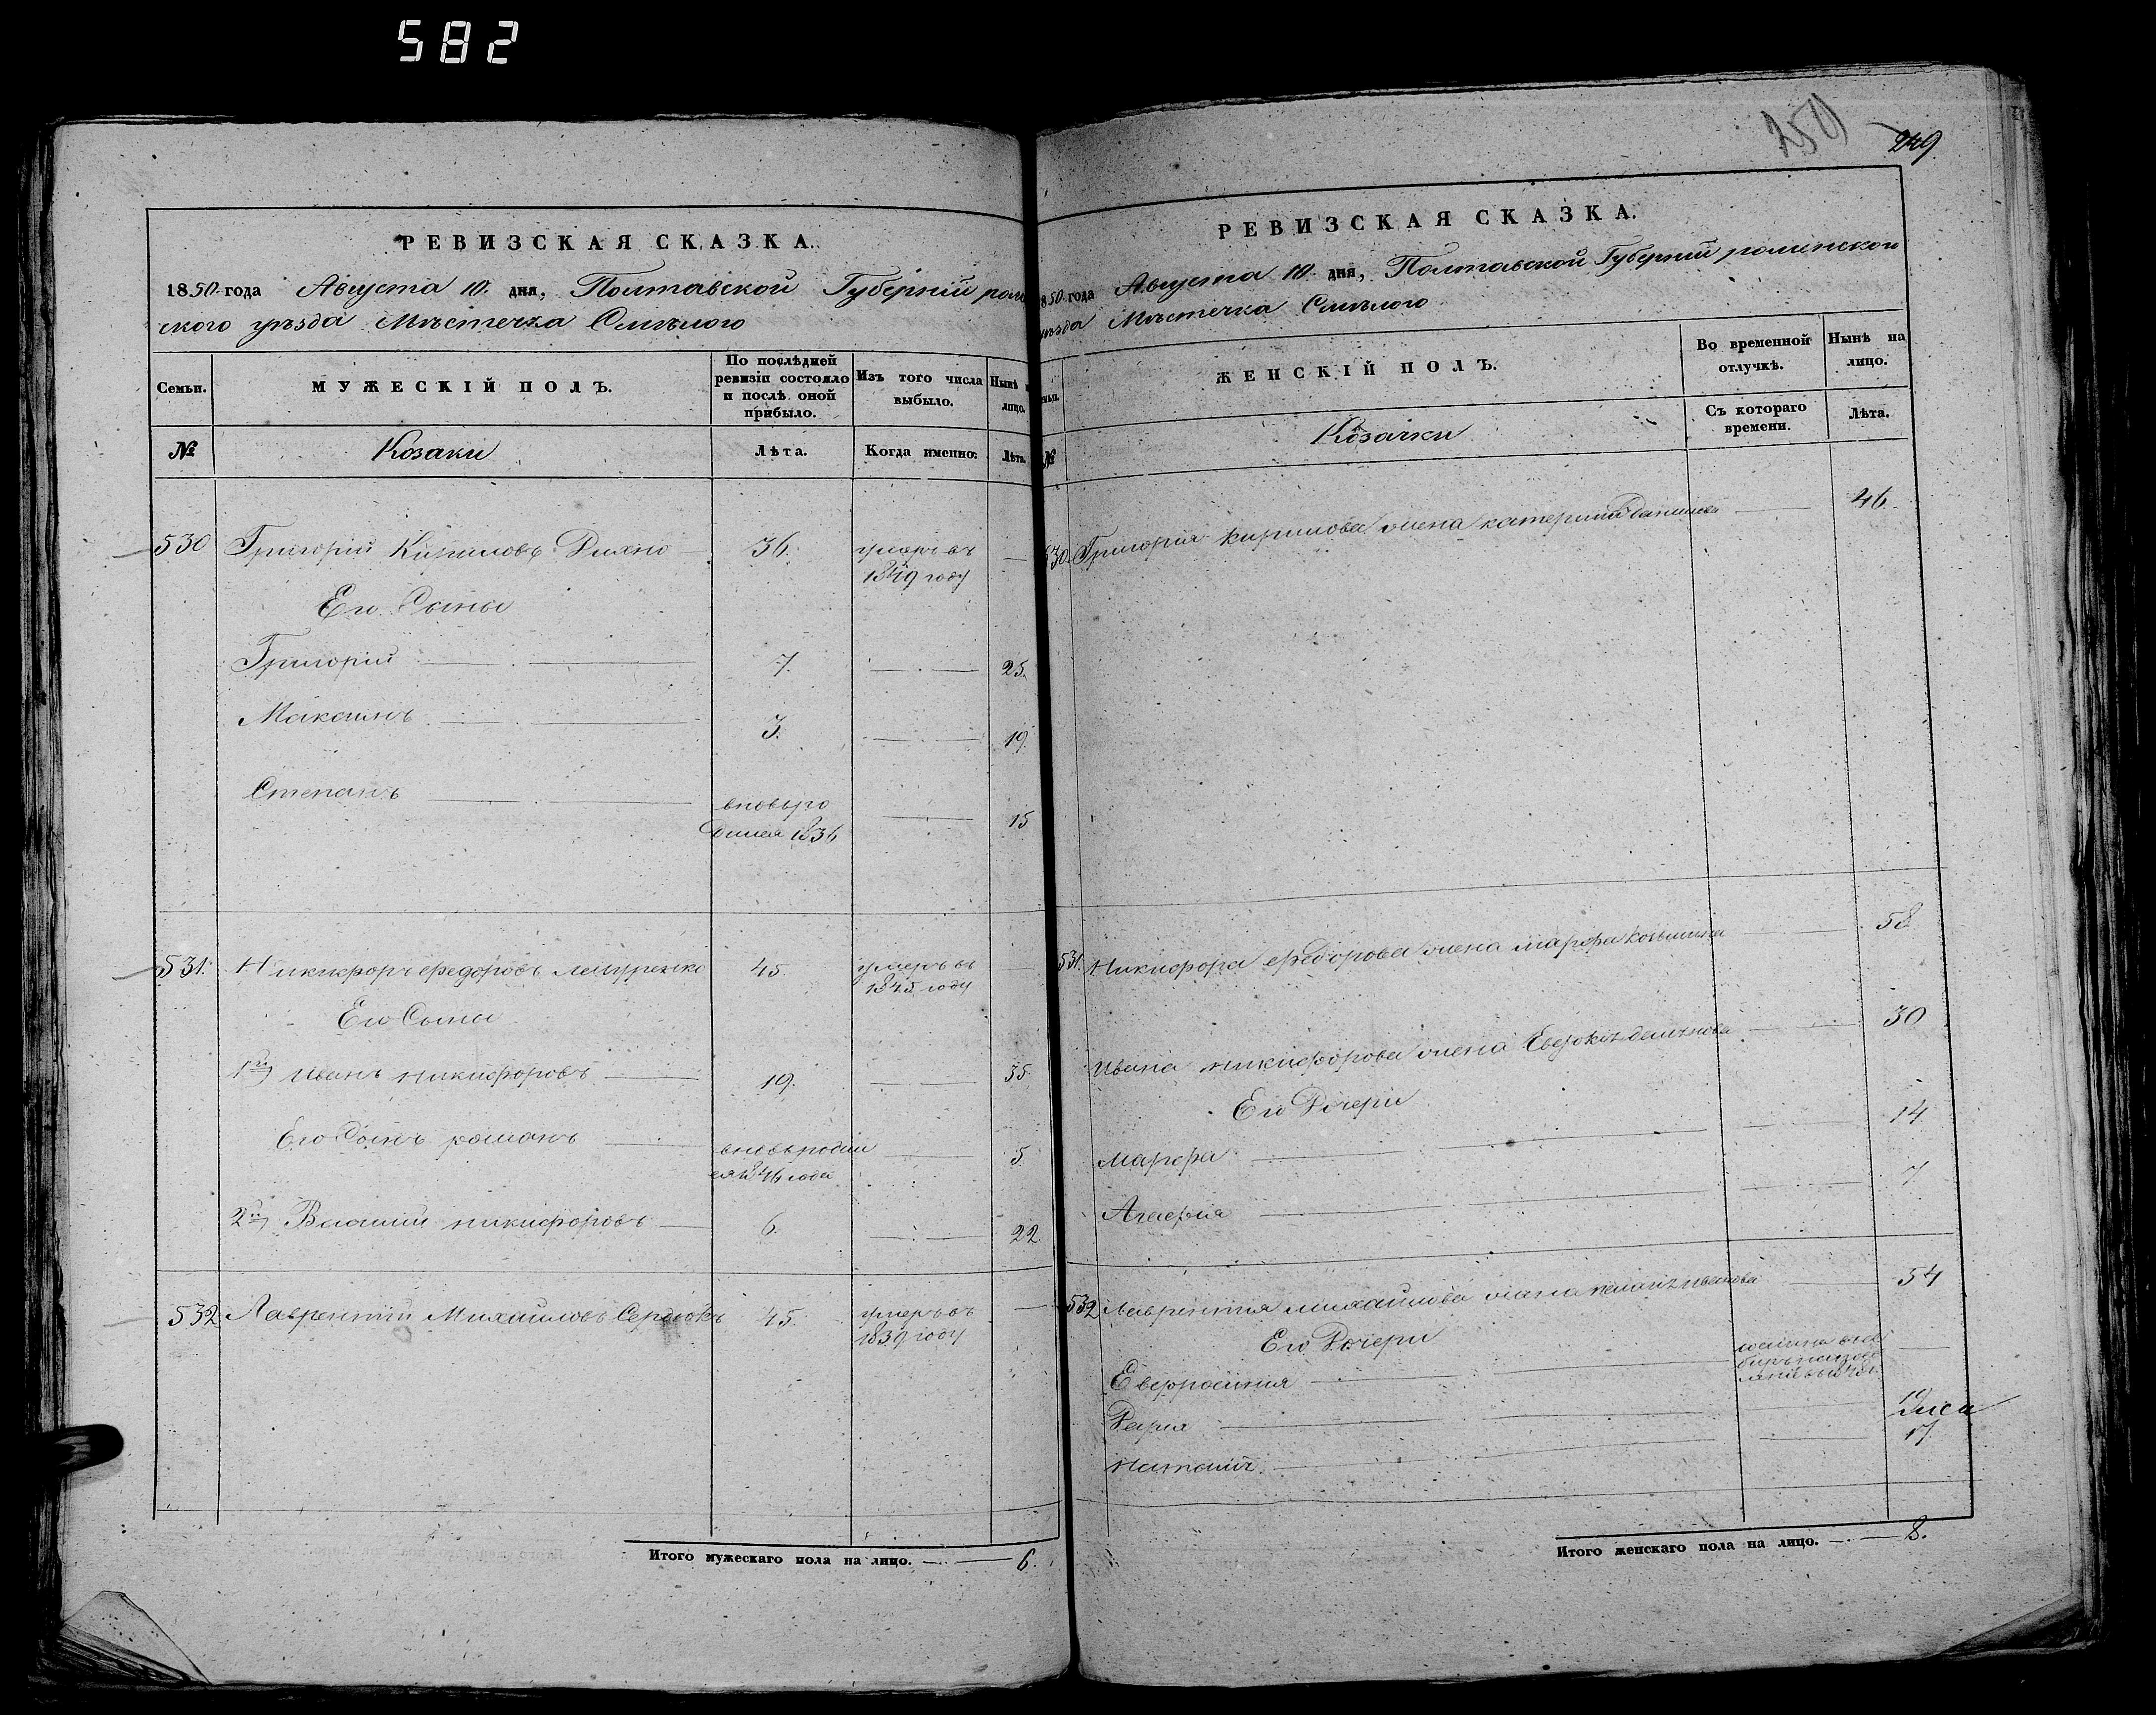 582
РЕВИЗСКАЯ СКАЗКА.
1850 года Августа 10. дня, Полтавской Губерніи ромен
ского уезда Местечка Смелого
Семьи.
МУЖЕСКІЙ ПОЛЪ.
По послѣдней ревизіи состояло и послѣ оной прибыло.
Изъ того числа выбыло.
Нынѣ на лицо.
№
Козаки
Лѣта.
Когда именно:
Лѣта.
530 Григорій Кириловъ 36. умеръ въ 1849 году
Его Сыны
Григорій 7. 25.
Максимъ 3. 19.
Степанъ вновь ро
дился 1836 15
531. Никифоръ Федоровъ 45. умеръ въ 1845 году
Его Сыны
1й Иванъ Никифоровъ 19. 35.
Его Сынъ романъ вновь родил
ся 1846 года 5.
2й Василий никифоровъ 6. 22.
532 Лаврентий Михайловъ Сердюкъ 45. умеръ въ 1839 году
Итого мужескаго пола на лицо. 6.
250 249.
РЕВИЗСКАЯ СКАЗКА.
1850 года Августа 10 дня, Полтавской Губерніи роменского
уезда Местечка Смелого
Семьи.
ЖЕНСКІЙ ПОЛЪ.
Во временной отлучкѣ.
Нынѣ на лицо.
№
Козачки
Съ котораго времени.
Лѣта.
530 Григория Кирилова жена катерина Данилова 46.
531. Никифора Федорова жена марфа 58
Ивана никифорова жена 30
Его Дочери
марфа 14
Агафия 7
532 Лаврентия михайлова жена Ивановa 54
Его Дочери
Евфросиния
Дария
Наталия 17
Итого женскаго пола на лицо. 8.